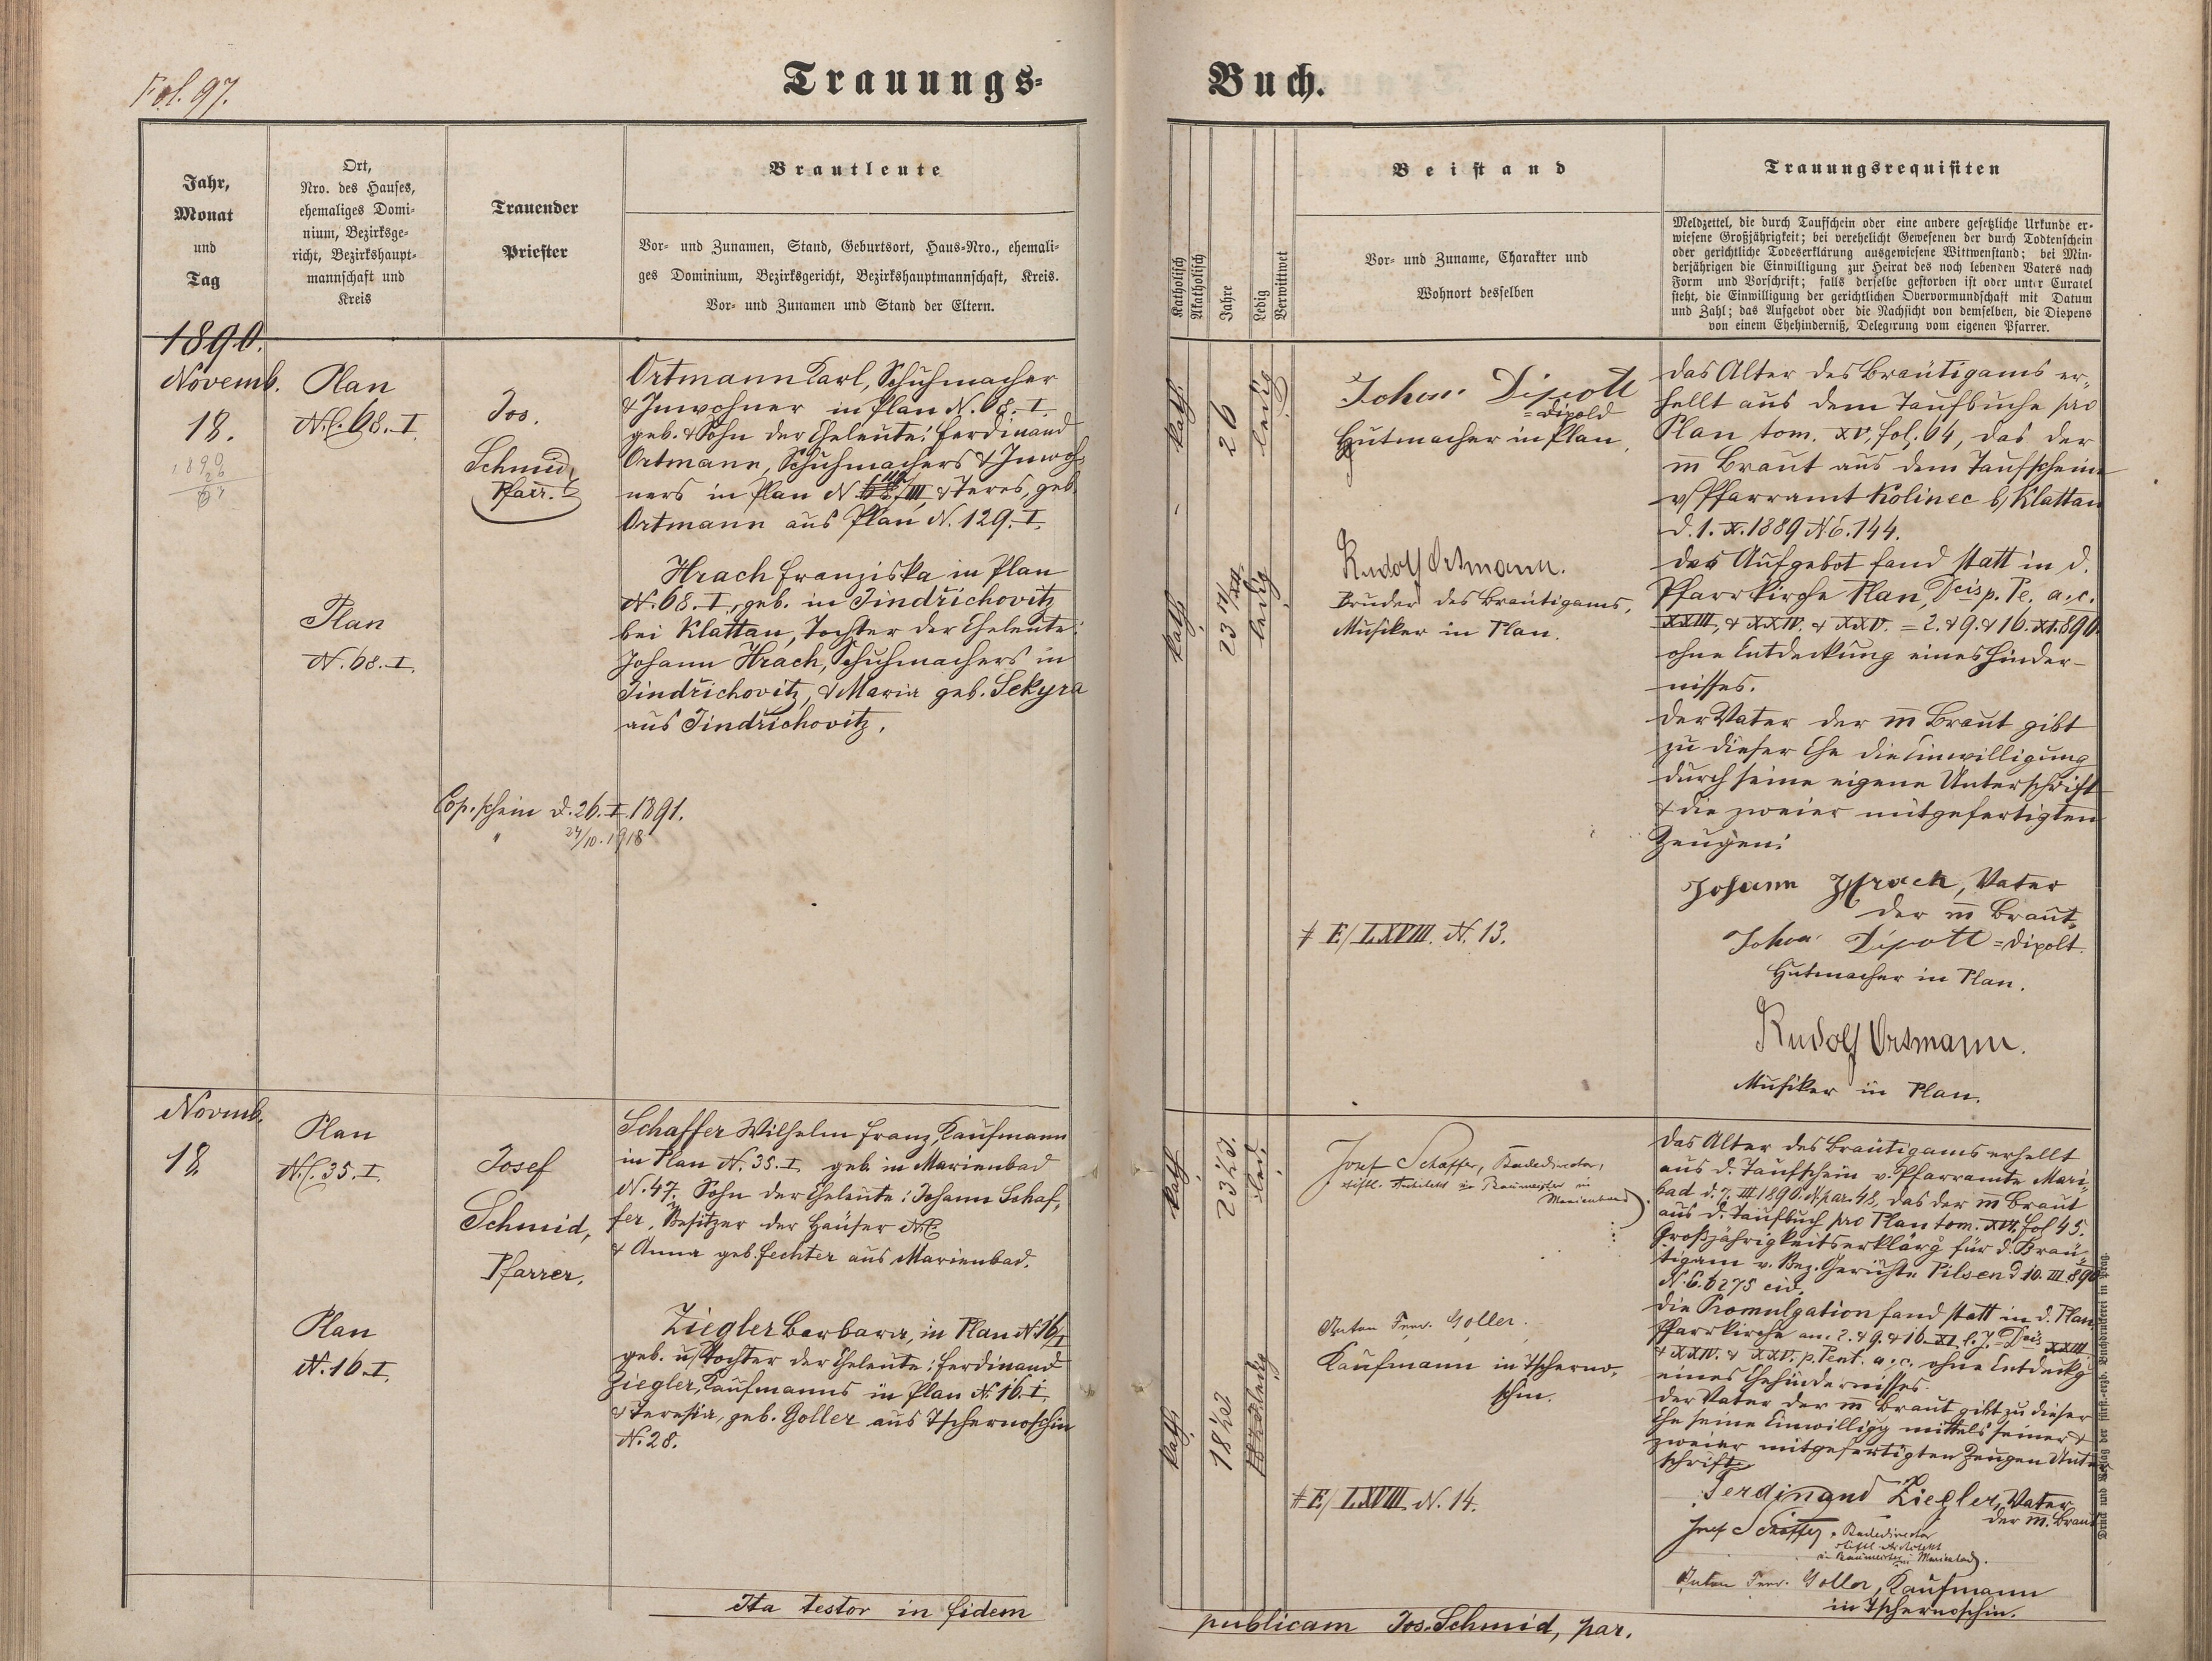 Fol. 97.
Trauungs-
Buch.
Jahr,
Monat
und
Tag
Ort,
Nro. des Hauses,
ehemaliges Domi-
nium, Bezirksge-
richt, Bezirkshaupt-
mannschaft und
Kreis
Trauender
Priester
Brautleute
Vor- und Zunamen, Stand, Geburtsort, Haus-Nro., ehemali-
ges Dominium, Bezirksgericht, Bezirkshauptmannschaft, Kreis.
Vor- und Zunamen und Stand der Eltern.
Katholisch
Akatholisch
Jahre
Ledig
Verwittwet
Beistand
Vor- und Zuname, Charakter und
Wohnort desselben
Trauungsrequisiten
Meldzettel, die durch Taufschein oder eine andere gesetzliche Urkunde er-
wiesene Großjährigkeit; bei verehelicht Gewesenen der durch Todtenschein
oder gerichtliche Todeserklärung ausgewiesene Wittwenstand; bei Min-
derjährigen die Einwilligung zur Heirat des noch lebenden Vaters nach
Form und Vorschrift; falls derselbe gestorben ist oder unter Curatel
steht, die Einwilligung der gerichtlichen Obervormundschaft mit Datum
und Zahl; das Aufgebot oder die Nachsicht von demselben, die Dispens
von einem Ehehinderniß, Delegirung vom eigenen Pfarrer.
1890.
Novemb.
18.
1890
26
Plan
N.C. 68. I.
Jos.
Schmid,
Pfarr.
Ortmann Karl, Schuhmacher
& Inwohner in Plan N. 68. I.
geb. & Sohn der Eheleute: Ferdinand
Ortmann, Schuhmachers & Inwoh-
ners in Plan N. III & Teres, geb.
Ortmann aus Plan N. 129. I.
kath.
26
ledig
Johan Dipoll
= Dipold
Hutmacher in Plan.
das Alter des Bräutigams er-
hellt aus dem Taufbuche pro
Plan tom. XV, fol. 64, das der
m Braut aus dem Taufscheine
v/ Pfarramt Kolinec b/ Klattau
d. 1. X. 1889 N E. 144.
das Aufgebot fand statt in d.
Pfarrkirche Plan, Dcis p. Pe. a. c.
XXIII, & XXIV. & XXV. = 2. & 9. & 16. XI. 890
ohne Entdeckung eines Hinder-
nisses.
der Vater der m Braut gibt
zu dieser Ehe die Einwilligung
durch seine eigene Unterschrift
& die zweier mitgefertigten
Zeugen:
Johann Hrach, Vater
der m Braut.
Johan Dipoll = Dipolt.
Hutmacher in Plan.
Rudolf Ortmann.
Musiker in Plan.
Plan
N. 68. I.
Hrach Franziska in Plan
N. 68. I, geb. in Jindřichovitz
bei Klattau, Tochter der Eheleute:
Johann Hrach, Schuhmachers in
Jindřichovitz, & Maria geb. Sekyra
aus Jindřichovitz.
kath.
23
ledig
Rudolf Ortmann.
Bruder des Bräutigams,
Musiker in Plan.
Cop. schein d. 26. I. 1891.
" 24/10. 1918
# E/ LXVIII. N. 13.
Novmb.
18
Plan
N.C. 35. I.
Josef
Schmid,
Pfarrer.
Schaffer Wilhelm Franz, Kaufmann
in Plan N. 35. I geb. in Marienbad
N. 47. Sohn der Eheleute: Johann Schaf-
fer, Besitzer der Häuser NC
& Anna geb. Fechter aus Marienbad.
kath
23
led.
Josef Schaffer, Badedirector,
stiftl. Architekt u Baumeister in
Marienbad
das Alter des Bräutigams erhellt
aus d. Taufschein v. Pfarramte Mari-
bad d. 7. III 1890. N par. 48, das der m Braut
aus d. Taufbuch pro Plan tom. XVI. fol 45.
Großjährigkeitserklärg für d. Bräu-
tigam v. Bez. Gerichte Pilsen d 10. III. 890
N. E. 6275 civ.
die Promulgation fand statt in d. Plan
Pfarrkirche am. 2. & 9. & 16. XI. l. J. = Dcis XXIII
& XXIV. & XXV. p. Pent. a. c. ohne Entdeckg
eines Ehehindernisses.
der Vater der m Braut gibt zu dieser
Ehe seine Einwilligg mittels seiner &
zweier mitgefertigten Zeugen Unter
schrift.
Ferdinand Ziegler, Vater
der m. Braut
Josef Schaffer, Badedirector
stiftl. Architekt
u Baumeister in Marienbad.
Anton Goller, Kaufmann
in Tschernoschin.
Plan
N. 16. I.
Ziegler Barbara, in Plan N. 16/I
geb. u/ Tochter der Eheleute: Ferdinand
Ziegler, Kaufmanns in Plan N. 16. I.
& Theresia, geb. Goller aus Tschernoschin
N. 28.
kath.
18
ledig
Anton Goller.
Kaufmann in Tscherno-
schin.
# E/ LXVIII N. 14.
Ita testor in fidem
publicam Jos. Schmid, par.
Druck und Verlag der fürst.-erzb. Buchdruckerei in Prag.